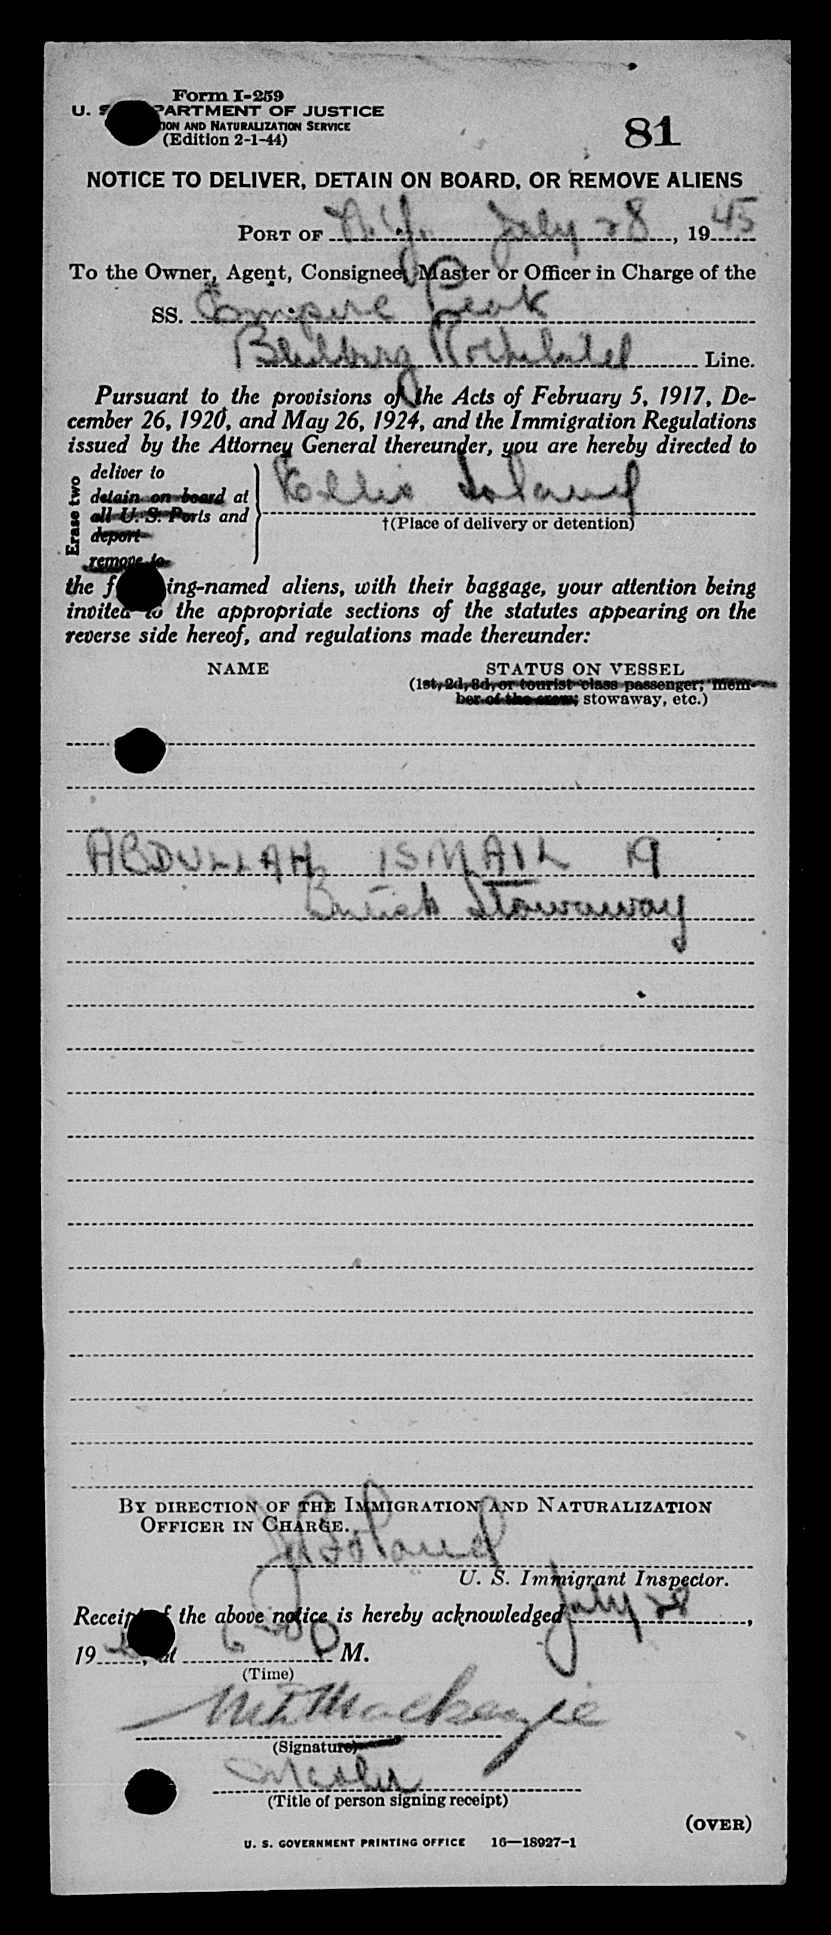 Form I-259
U. S. DEPARTMENT OF JUSTICE
ION AND NATURALIZATION SERVICE
(Edition 2-1-44)
81
NOTICE TO DELIVER, DETAIN ON BOARD, OR REMOVE ALIENS
PORT OF N.Y. July 28, 1945
To the Owner, Agent, Consignee, Master or Officer in Charge of the
SS. Empire Peak
Line.
Pursuant to the provisions of the Acts of February 5, 1917, De-
cember 26, 1920, and May 26, 1924, and the Immigration Regulations
issued by the Attorney General thereunder, you are hereby directed to
Erase two
deliver to
detain on board at
all U. S. Ports and
deport
remove to
Ellis Island
†(Place of delivery or detention)
the following-named aliens, with their baggage, your attention being
invited to the appropriate sections of the statutes appearing on the
reverse side hereof, and regulations made thereunder:
NAME STATUS ON VESSEL
(1st, 2d, 3d, or tourist class passenger; mem-
ber of the crew; stowaway, etc.)
ABDULLAH ISMAIL 19
British Stowaway
BY DIRECTION OF THE IMMIGRATION AND NATURALIZATION
OFFICER IN CHARGE.
U. S. Immigrant Inspector.
Receipt of the above notice is hereby acknowledged July 28,
19, at 6 00 P M.
(Time)
Mackenzie
(Signature)
Master
(Title of person signing receipt)
(OVER)
U. S. GOVERNMENT PRINTING OFFICE 16—18927-1